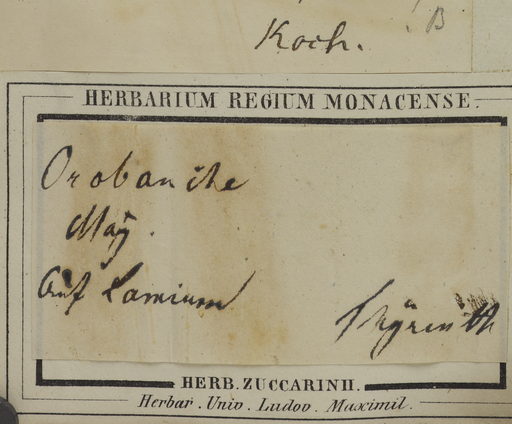 B
Koch.
HERBARIUM REGIUM MONACENSE.
Orobanche
May.
Auf Lamium
HERB. ZUCCARINII.
Herbar. Univ. Ludov. Maximil.